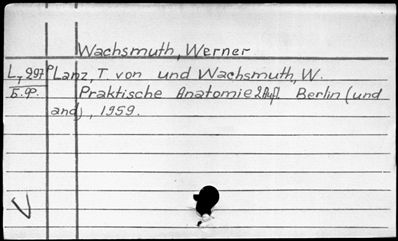 Wachsmuth, Werner
L7 297º Lanz, T. von und Wachsmuth, W.
Praktische Anatomie 2Aufl. Berlin (und
and), 1959.